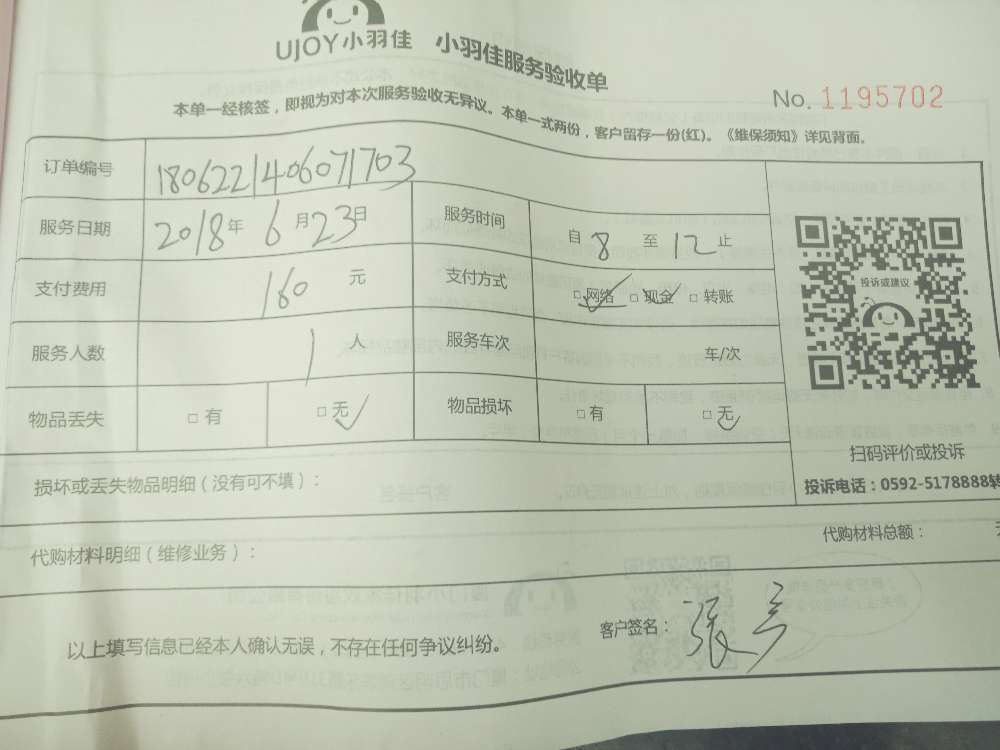 UJOY小羽佳 小羽佳服务验收单
No. 1195702
本单一经核签，即视为对本次服务验收无异议。本单一式两份，客户留存一份(红)。《维保须知》详见背面。
订单编号 1806221406071703
服务日期 2018年 6月23日 服务时间 自 8 至 12 止
支付费用 160 元 支付方式 □网络 □现金 □转账
投诉或建议
服务人数 1 人 服务车次 车/次
物品丢失 □有 □无 物品损坏 □有 □无
扫码评价或投诉
损坏或丢失物品明细（没有可不填）：
投诉电话：0592-5178888转
代购材料明细（维修业务）： 代购材料总额：
以上填写信息已经本人确认无误，不存在任何争议纠纷。 客户签名： 张